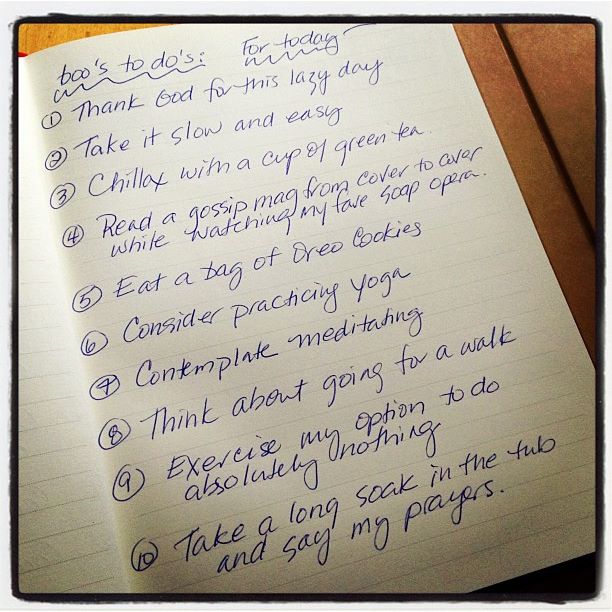 boo's to do's: For today
① Thank God for this lazy day
② Take it slow and easy
③ Chillax with a cup of green tea.
④ Read a gossip mag from cover to cover
while watching my fave soap opera.
⑤ Eat a bag of Oreo Cookies
⑥ Consider practicing yoga
⑦ Contemplate meditating
⑧ Think about going for a walk
⑨ Exercise my option to do
absolutely nothing
⑩ Take a long soak in the tub
and say my prayers.